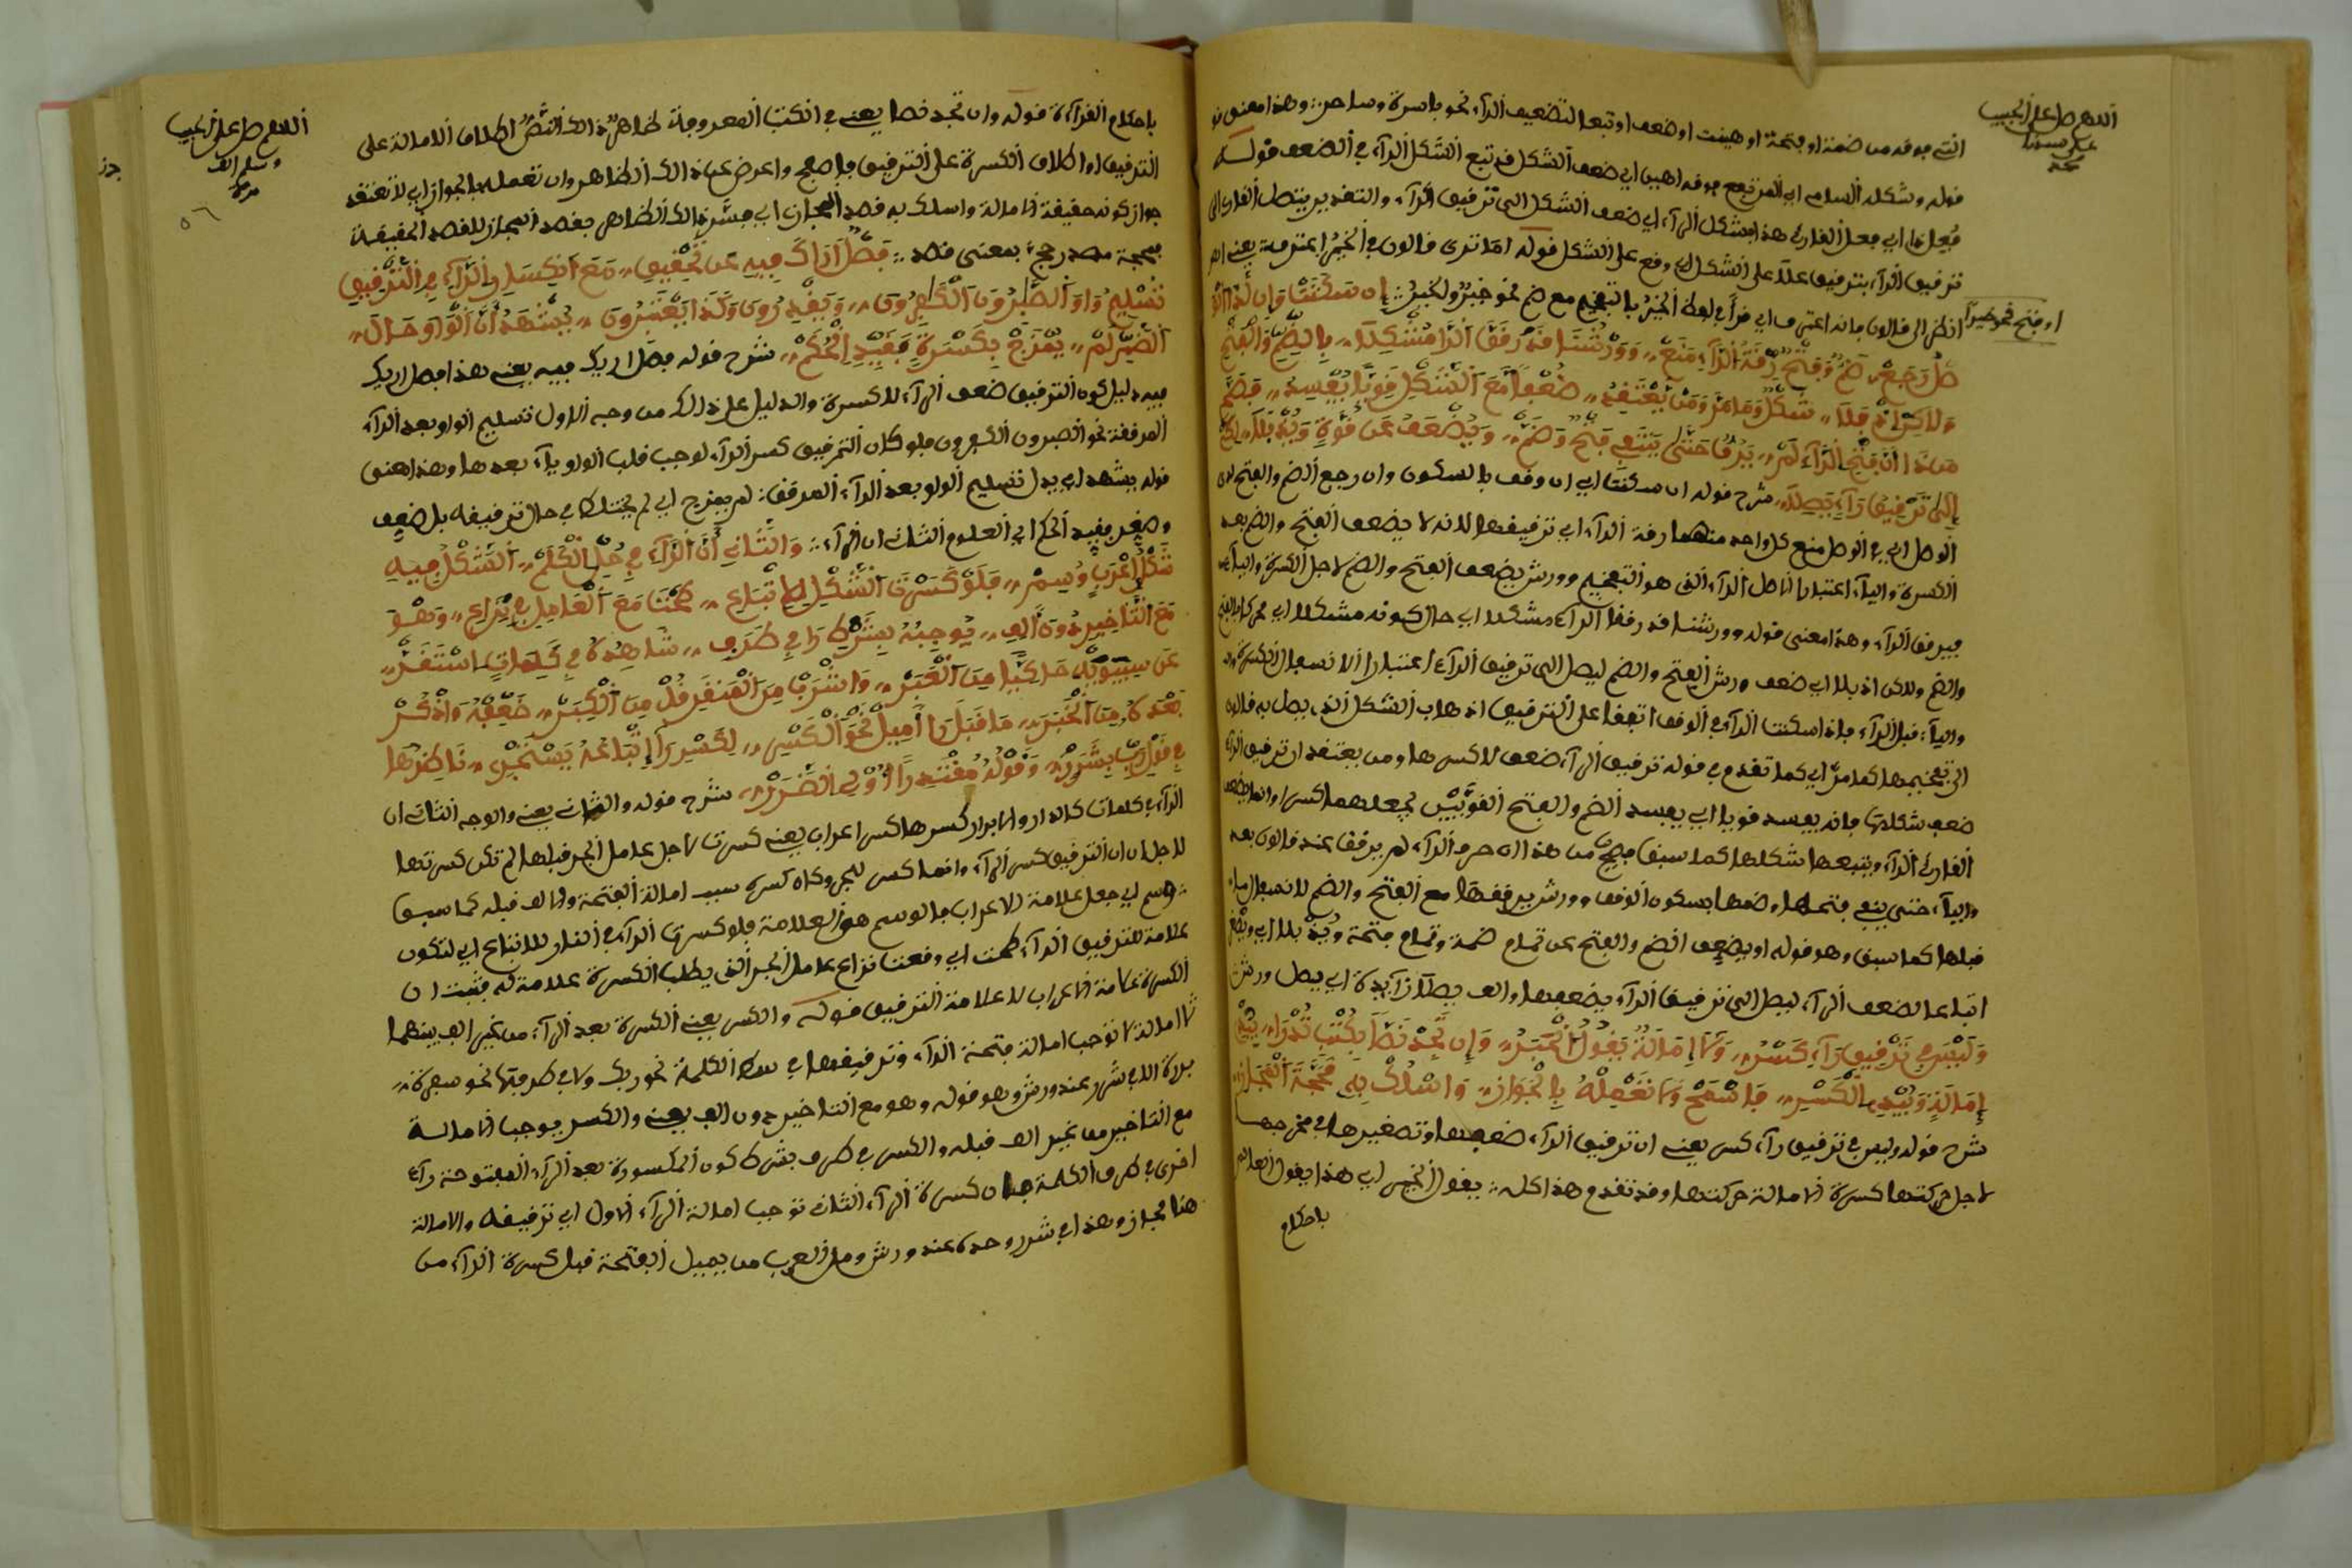 اللهم صل على الحبيب
على سيدنا
محمد
التي فوقه من ضمة او فتحة او هيئت او ضعف او تبعا لتضعيف الرآء نحو باسرة وساحر وهذا معنى
قوله وشكله السامي اي المرتفع فوقه اهين اي ضعف الشكل قد تبع الشكل الرآء في الضعف قوله
فعل ما اي فعل القارئ هذا بشكل الرآء اي ضعف الشكل الى ترقيق الرآء والتقدير يتصل القارئ الى
ترقيق الرآء بترقيق على الشكل اي وقع على الشكل قوله اما ترى قالون في الخير اعترف يعني
او فتح نحو خيرا
انظر الى قالون فانه اعترف اي قرأ في لفظ الخير بالتفخيم مع ضم نحو خير ولخير إن سكنت وإن لدا
صل رجع ضم وفتح رقة الرآء منع وورشنا قد رقق الرا مشكلا بالضم والفتح
ولاكن اذ بلا شكل وما مر ومن يعتقد ضعفا مع الشكل قويا يفسد فضم
من ذا ان فتح الرآء لم يرقا حتى ينتفي فتح وضم ويضعف عن قوة وبذ بلا لكي
إلى ترقيق رآء يصلا شرح قوله ان سكنت اي ان وقف بالسكون وان رجع الضم والفتح لدى
الوصل اي في الوصل منع كل واحد منهما رقة الرآء اي ترقيقها لانه لا يضعف الفتح والضم بعد
الكسرة واليآء اعتبارا لاصل الرآء الذي هو التفخيم وورش يضعف الفتح والضم لاجل الكسرة والياء
فيرقق الرآء وهذا معنى قوله وورشنا قد رقق الرآء مشكلا اي حال كونه مشكلا اي محركا بالفتح
والضم ولاكن اذ بلا اي ضعف ورش الفتح والضم ليصل الى ترقيق الرآء اعتبارا لانسفال الكسرة
واليآء قبل الرآء فاذا سكنت الرآء في الوقف اتفقا على الترقيق اذ هاب الشكل الذي يصل به قالون
الى تفخيمها كما مر اي كما تقدم في قوله ترقيق الرآء ضعف لا كسرها ومن يعتقد ان ترقيق الرآء
ضعف شكلها فانه يفسد قويا اي يفسد الضم والفتح القويين لجعلهما كسرا وانما يضعف
القارئ الرآء ويتبعها شكلها كما سبق فيهن من هذا ان حرف الرآء لم يرقق عند قالون بعد
واليآء حتى ينفي فتحها وضمها بسكون الوقف وورش يرققها مع الفتح والضم لانسفال ما
قبلها كما سبق وهو قوله او يضعف الضم والفتح عن تمام ضمة وتمام فتحة وبذ بلا اي
اتباعا لضعف الرآء ليصل الى ترقيق الرآء بضعفها والف يصلا زآيدة اي يصل ورش
وليس في ترقيق رآء كسر ولا إمالة يقول الخبر وإن تجد نصا بكتب تدرا
إمالة وبيد بالكسر فاسمح ولا تعمله بالجواز واسلك به محجة المجاز
شرح قوله وليس في ترقيق رآء كسر يعني ان ترقيق الرآء ضعفها وتصغيرها في مخرجها
لا جعل حركتها كسرة ولا امالة حركتها وقد تقدم هذا كله يقول الخبر اي هذا يقول العالم
باحكام
اللهم صل على الحبيب
وسلم الف
مرة
٥٦
باحكام القرآءة قوله وان تجد نصا يعني في الكتب المعروفة ظاهر ذالك النص اطلاق الامالة على
الترقيق او اطلاق الكسرة على الترقيق فاصفح واعرض عن ذالك الظاهر وان تعمله بالجواز اي لا تعتقد
جواز كونه حقيقة الامالة واسلك به قصد المجاز اي فسر ذالك الظاهر بقصد المجاز للقصد الحقيقة
بمحجة مصدر حج بمعنى قصد فصل اذاك فيه عن تحقيق مع انكسار الرآء في الترقيق
تسليم واو الصابرون الكافرون ويقدرون وكذا يعتبرون يشهد أن الواو حال
الضير لم يمزج بكسرة بقيد الحكم شرح قوله فصل اريك فيه يعني هذا فصل اريك
فيه دليل كون الترقيق ضعف الرآء لا كسرة والدليل على ذالك من وجه الاول تسليم الواو بعد الرآء
المرققة نحو الصبرون الكفرون فلو كان الترقيق كسر الرآء لوجب قلب الواو يآء بعدها وهذا معنى
قوله يشهد اي يدل تسليم الواو بعد الرآء المرققة لم يمزج اي لم يختلط في حال ترقيقه بل ضعف
وصغر بقيد الحكم اي العلوم الثاني ان الرآء والثاني أن الرآء في جل الكلم الشكل فيه
شكل إعرب وسم فلو كسرت الشكل للاتباع كنت مع العامل في نزاع وهو
مع التاخير دون ألف يوجبه بشرط را في طرف شاهده في كلمات استقر
عن سيبويه حاكيا من الغبر واشربا من المنقر قل من الكبر ضعفه واذكر
بعده من الخبر ما قبل را أميل نحو الكسر لكسر رآ إتباعه يستمر ناظرها
في قول رب بشرر وقوله مقتدرا أولي الضرر شرح قوله والثاني يعني والوجه الثاني ان
الرآء في كلمات كالدار والابرار كسرها كسر اعراب يعني كسرت لاجل عامل الجر قبلها لم تكن كسرتها
لاجل ان الترقيق كسر الرآء وانما كسر للجر وكان كسره سبب امالة الفتحة والالف قبله كما سبق
وسم اي جعل علامة للاعراب فالوسم هو العلامة فلو كسرت الرآء في النار للاتباع اي لتكون
علامة للترقيق الرآء كنت اي وقعت نزاع عامل الجر الذي يطلب الكسرة علامة له فثبت ان
الكسرة علامة الاعراب لا علامة الترقيق قوله والكسر يعني الكسرة بعد الرآء من غير الف بينهما
لا امالة لا توجب امالة فتحة الرآء وترقيقها في وسط الكلمة نحو ربك ولا في طرفها نحو سفرة
بلاة الا في شرر عند ورش وهو قوله وهو مع التاخير دون الف يعني والكسر يوجب الامالة
مع التاخير من غير الف قبله والكسر في طرف بشرط كون المكسورة بعد الرآء المفتوحة رآء
اخرى في طرف الكلمة فان كسرة الرآء الثاني توجب امالة الرآء الاول اي ترقيقه والامالة
هنا مجاز وهذا في شرر وحده عند ورش ومن العرب من يميل الفتحة قبل كسرة الرآء من